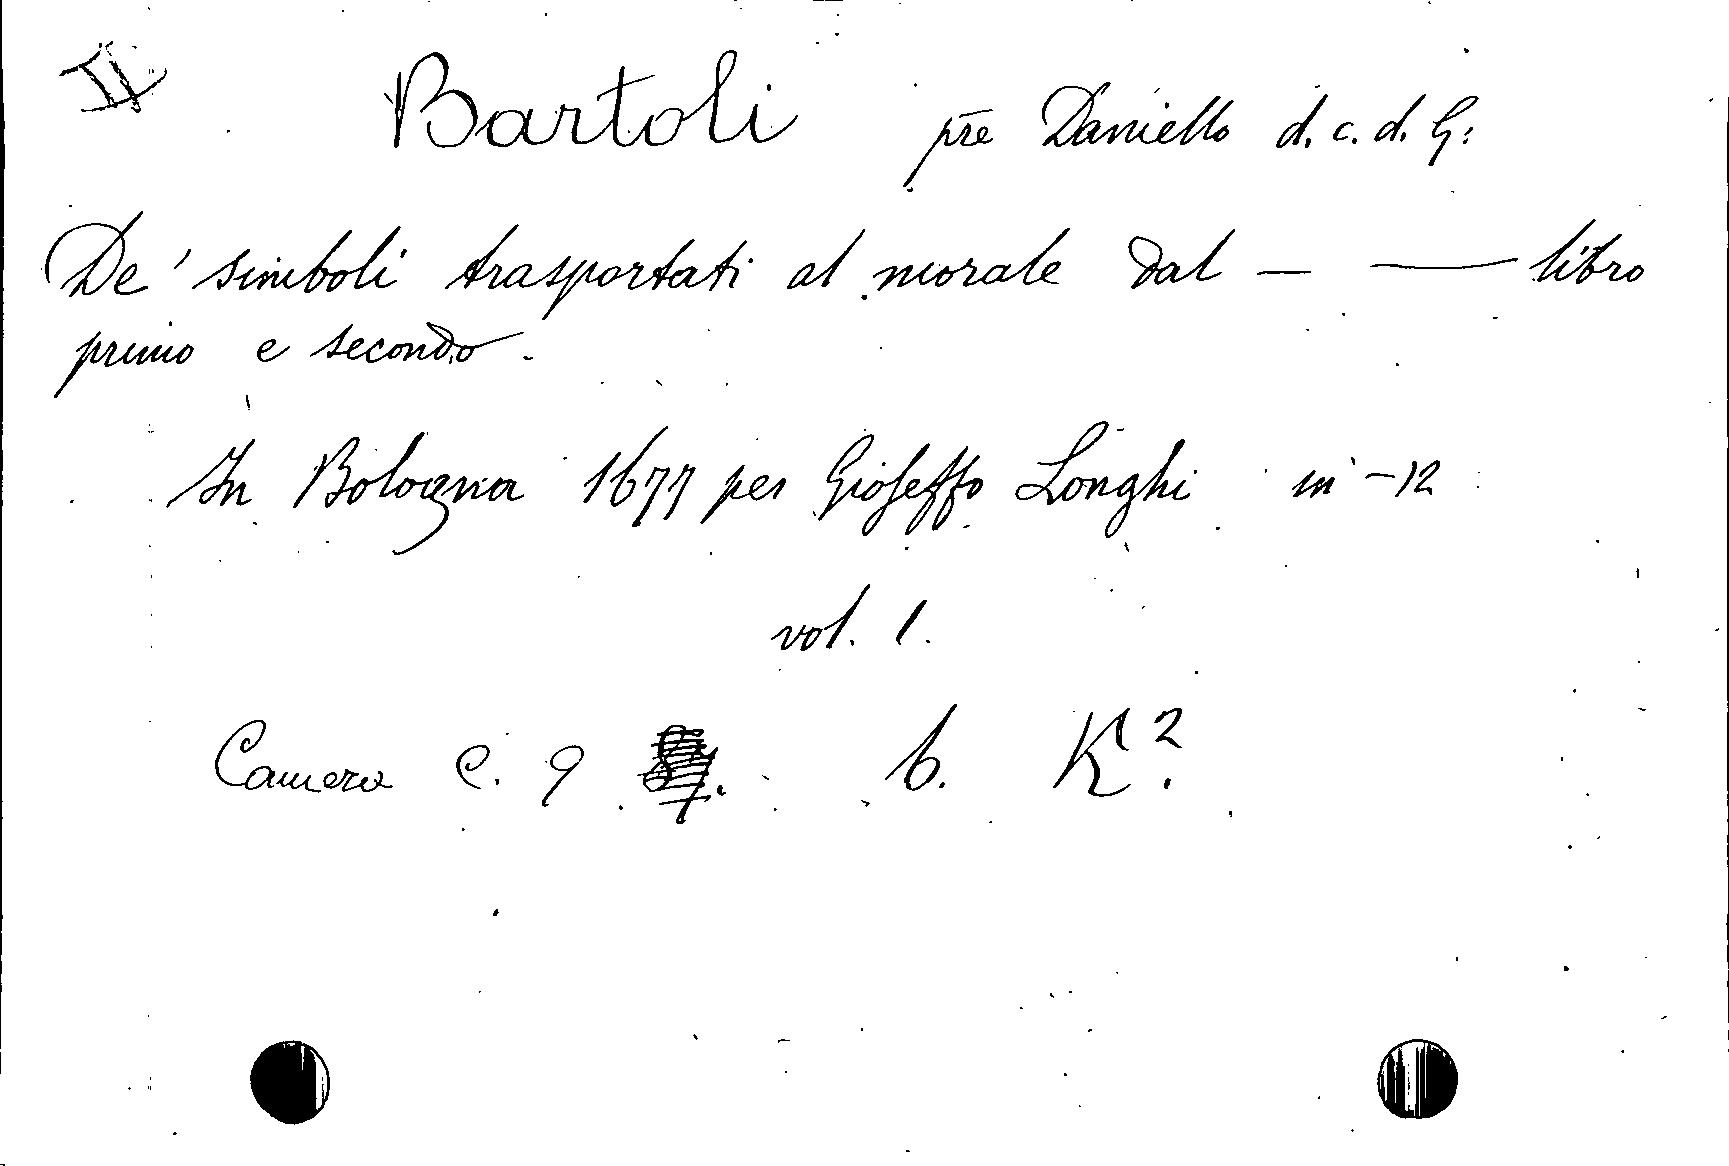 II Bartoli p̄re Daniello d. c. d. G:
De' simboli trasportati al morale dal — — libro
primo e secondo.
In Bologna 1677 per Gioseffo Longhi in -12
vol. 1.
Camera C. 9 b. K².